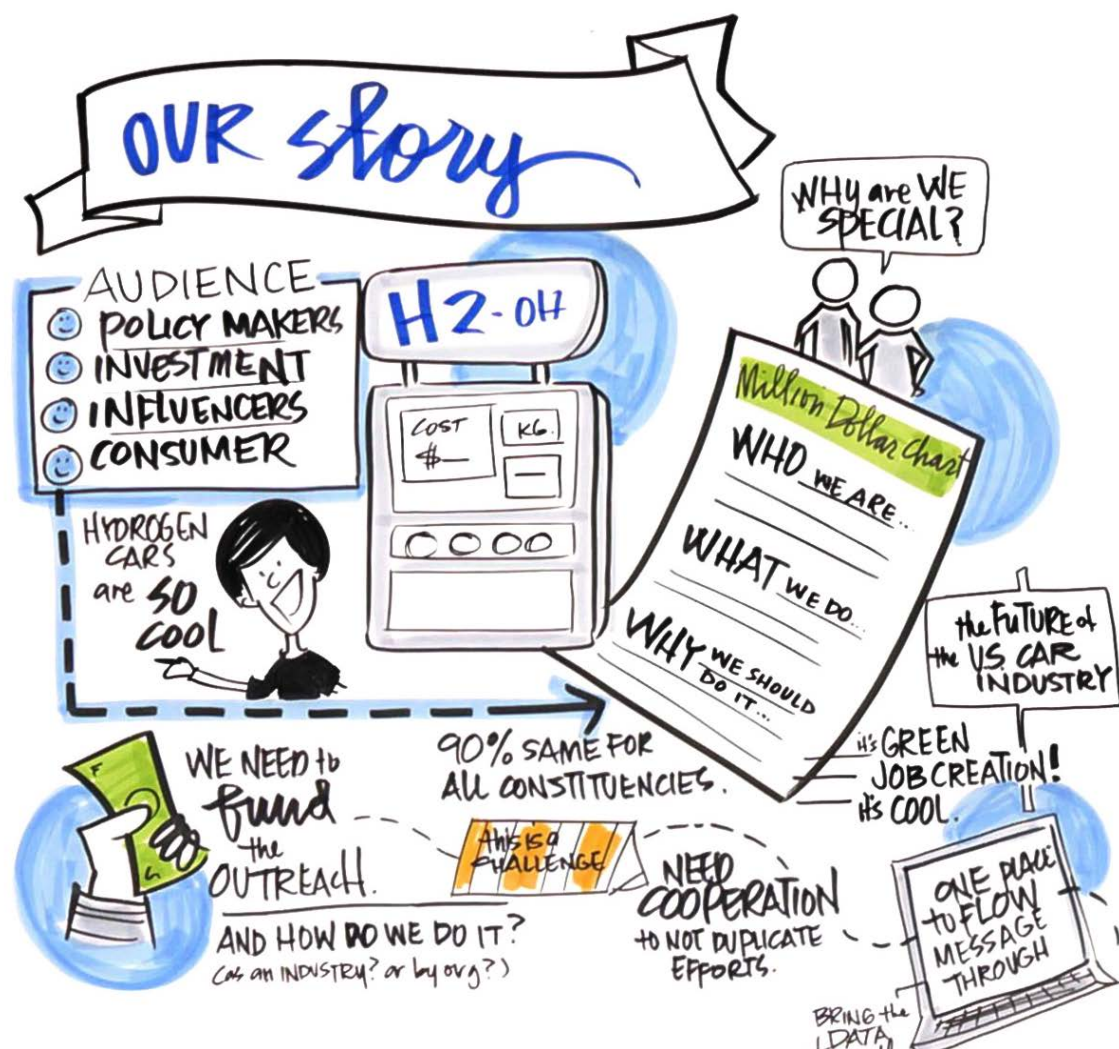 OUR story
WHY are WE
SPECIAL?
AUDIENCE
POLICY MAKERS
INVESTMENT
INFLUENCERS
CONSUMER
H2-OH
COST
$
KG.
Million Dollar Chart
WHO WE ARE...
WHAT WE DO...
WHY WE SHOULD
DO IT...
HYDROGEN
CARS
are SO
COOL
the FUTURE of
the US CAR
INDUSTRY
it's GREEN
JOB CREATION!
it's COOL.
90% SAME FOR
ALL CONSTITUENCIES.
WE NEED to
fund
the
OUTREACH.
AND HOW DO WE DO IT?
(as an INDUSTRY? or by org?)
this is a
CHALLENGE
NEED
COOPERATION
to NOT DUPLICATE
EFFORTS.
ONE PLACE
to FLOW
MESSAGE
THROUGH
BRING the
DATA